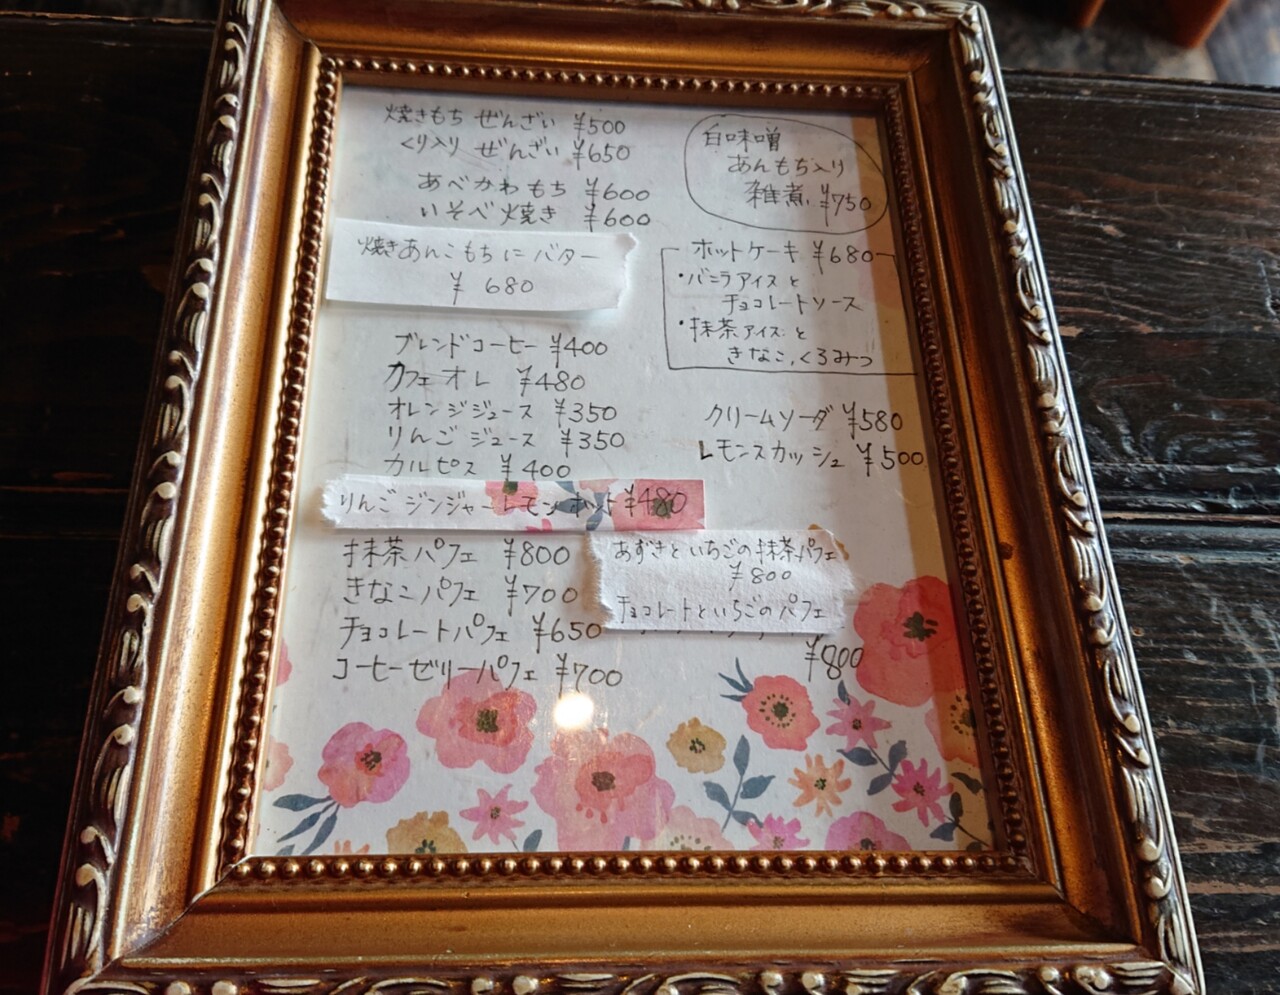 焼きもち ぜんざい ¥500
くり入り ぜんざい ¥650
あべかわもち ¥600
いそべ焼き ¥600
焼きあんこもちにバター
¥ 680
ブレンドコーヒー ¥400
カフェオレ ¥480
オレンジジュース ¥350
りんごジュース ¥350
カルピス ¥400
りんごジンジャーレモンホット ¥480
抹茶パフェ ¥800
きなこパフェ ¥700
チョコレートパフェ ¥650
コーヒーゼリーパフェ ¥700
白味噌
あんもち入り
雑煮 ¥750
ホットケーキ ¥680
・バニラアイスと
チョコレートソース
・抹茶アイスと
きなこ、くろみつ
クリームソーダ ¥580
レモンスカッシュ ¥500
あずきといちごの抹茶パフェ
¥800
チョコレートといちごのパフェ
¥800